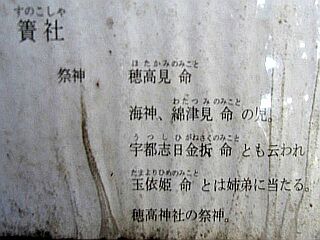 すのこしゃ
簀社
祭神
ほたかみのみこと
穂高見 命
わたつみのみこと
海神、綿津見 命 の児。
うつしひがねさくのみこと
宇都志日金拆 命 とも云われ
たまよりひめのみこと
玉依姫 命 とは姉弟に当たる。
穂高神社の祭神。